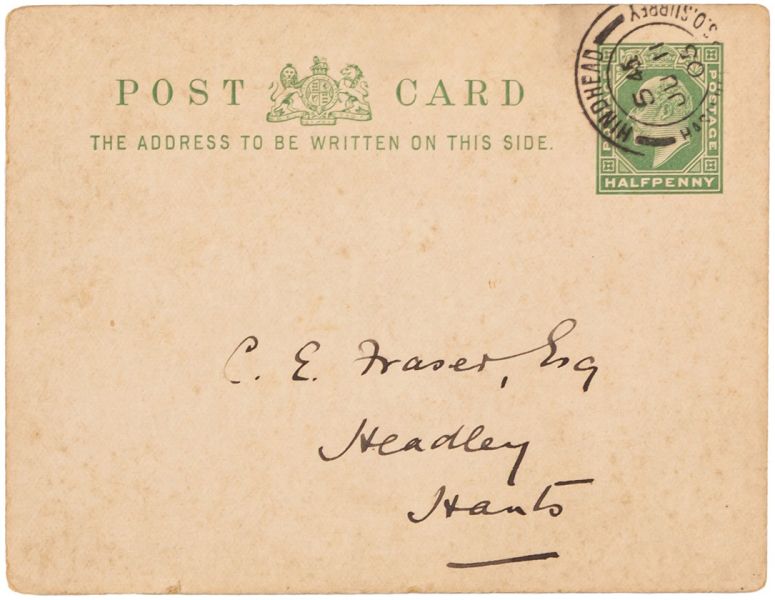 POST CARD
THE ADDRESS TO BE WRITTEN ON THIS SIDE.
HINDHEAD
S.O. SURREY
5 45
JU 11
03
POSTAGE
HALFPENNY
C. E. Fraser, Esq
Headley
Hants